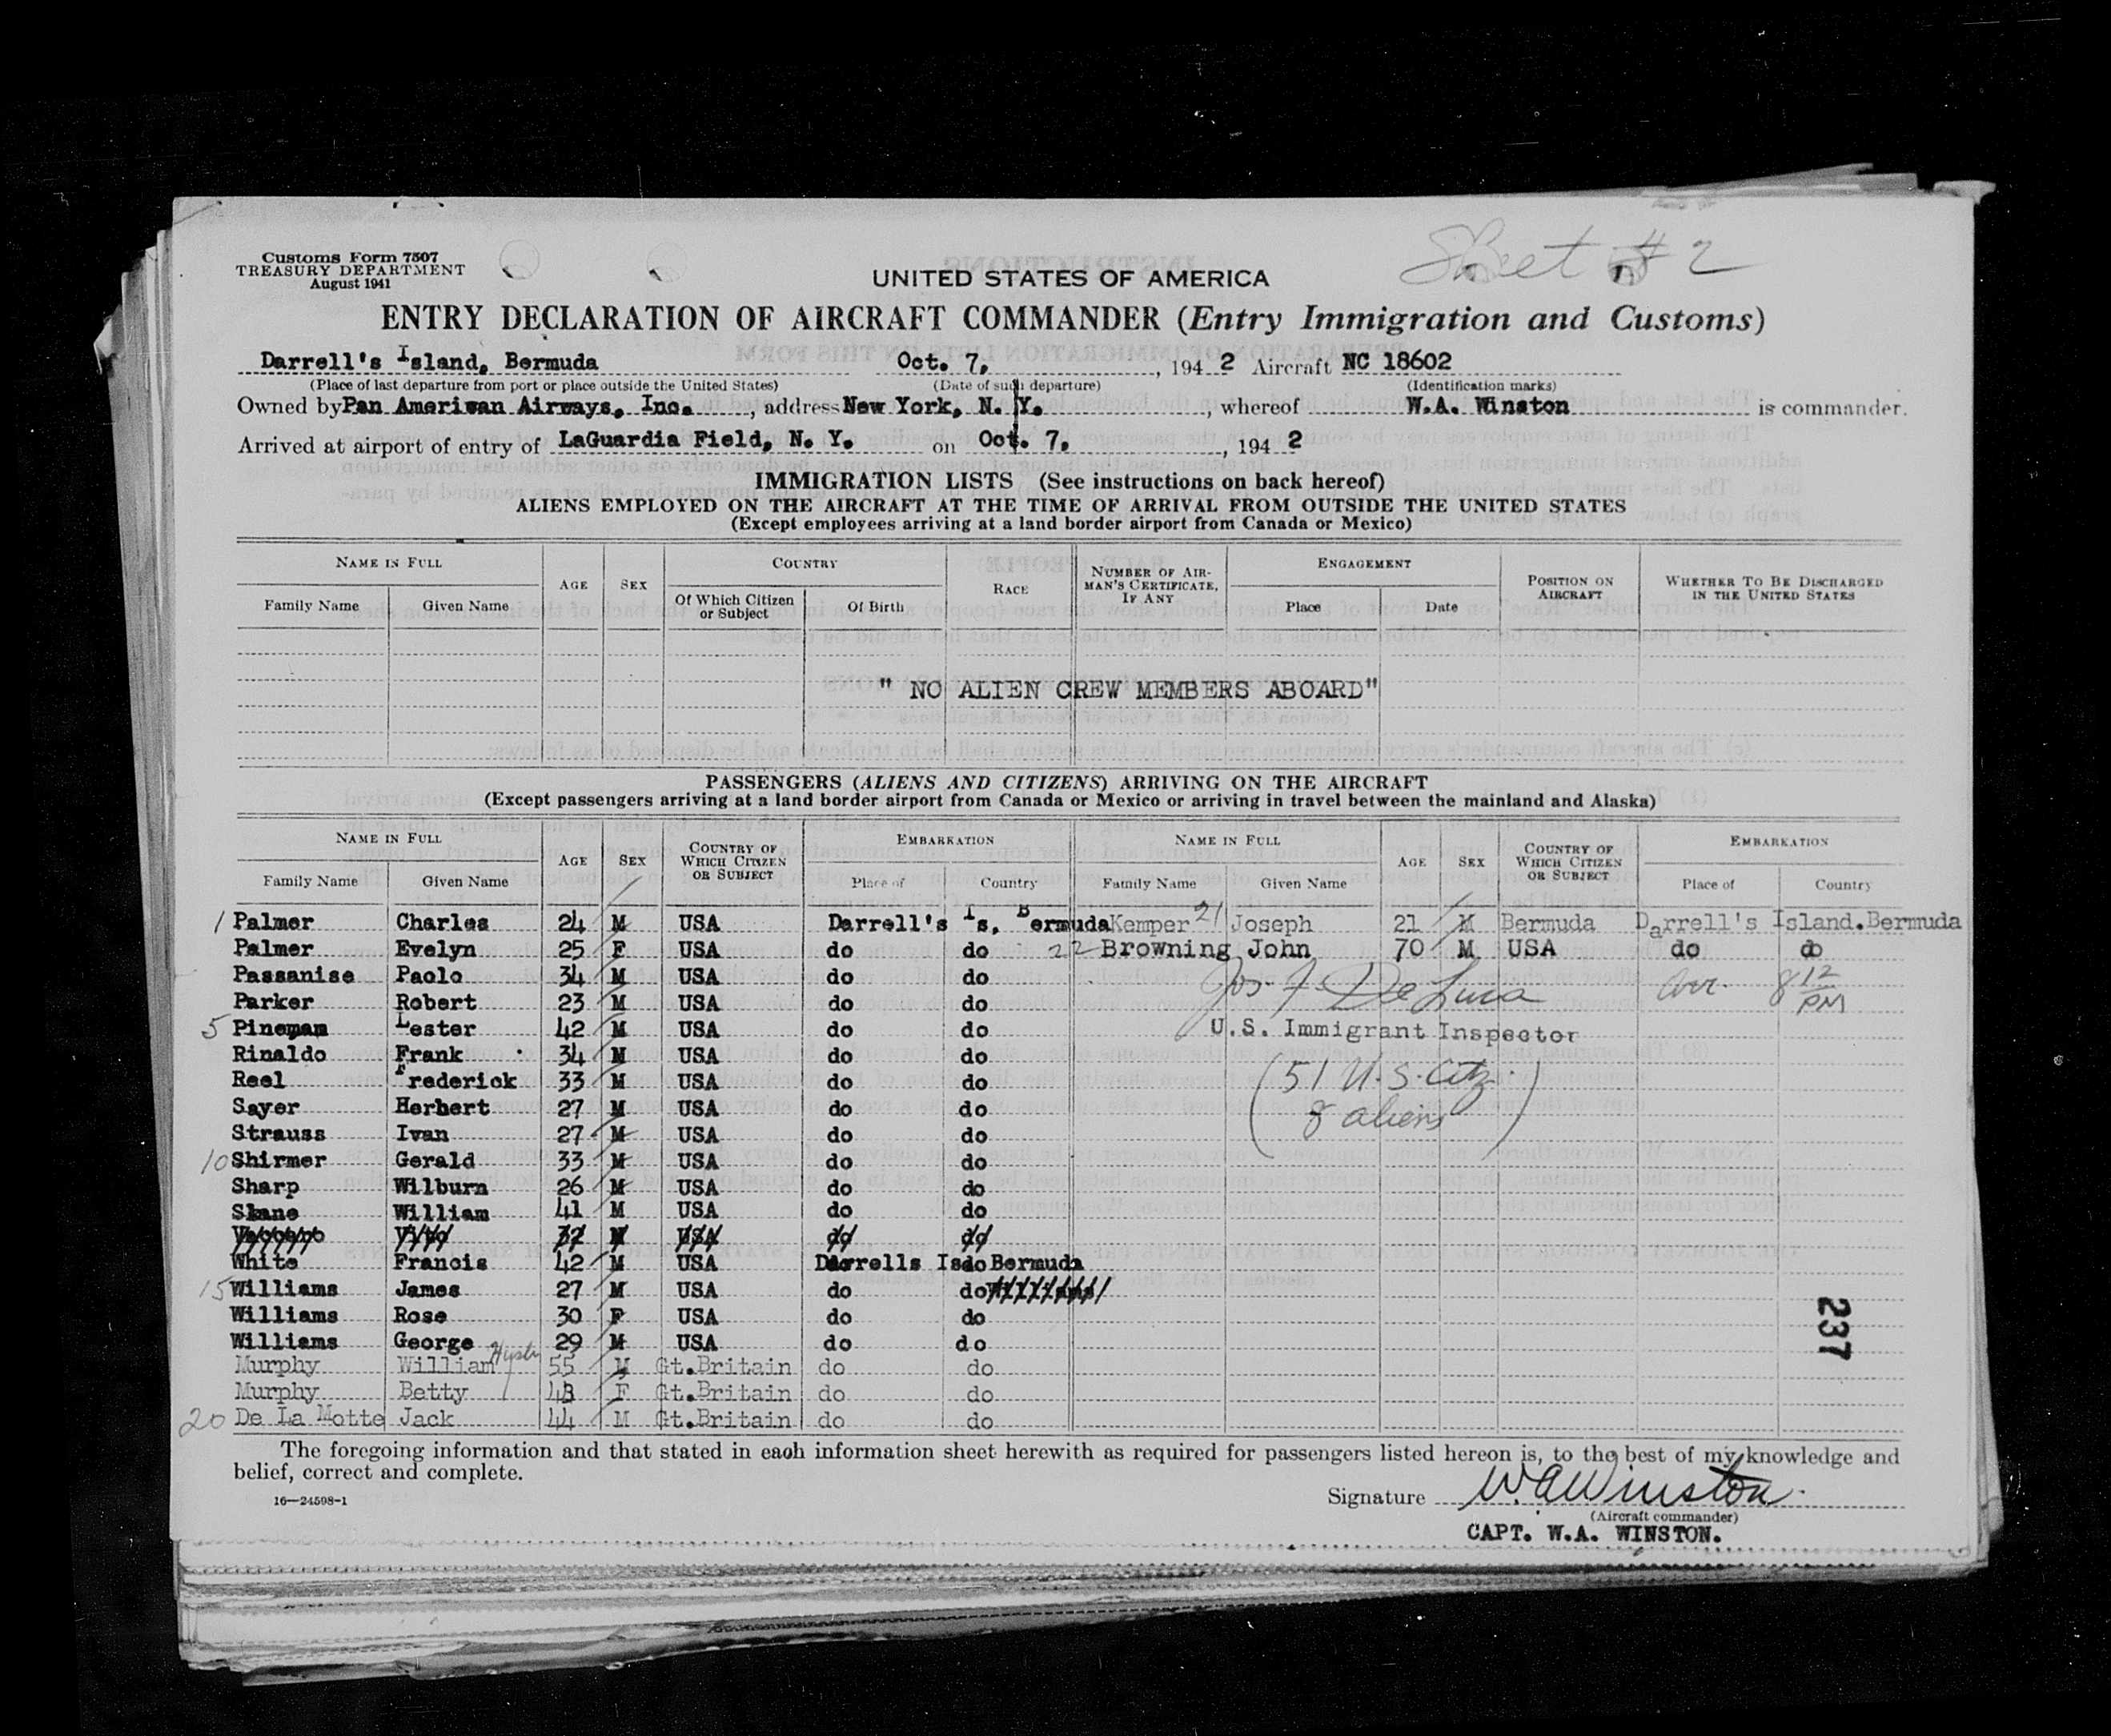 Sheet # 2
Customs Form 7507
TREASURY DEPARTMENT
August 1941
UNITED STATES OF AMERICA
ENTRY DECLARATION OF AIRCRAFT COMMANDER (Entry Immigration and Customs)
Darrell's Island, Bermuda Oct. 7, , 194 2 Aircraft NC 18602
(Place of last departure from port or place outside the United States) (Date of such departure) (Identification marks)
Owned by Pan Ameriwan Airways, Inc. , address New York, N. Y. , whereof W.A. Winston is commander.
Arrived at airport of entry of LaGuardia Field, N. Y. on Oct. 7, , 194 2
IMMIGRATION LISTS (See instructions on back hereof)
ALIENS EMPLOYED ON THE AIRCRAFT AT THE TIME OF ARRIVAL FROM OUTSIDE THE UNITED STATES
(Except employees arriving at a land border airport from Canada or Mexico)
NAME IN FULL AGE SEX COUNTRY RACE NUMBER OF AIRMAN'S CERTIFICATE, IF ANY ENGAGEMENT POSITION ON AIRCRAFT WHETHER TO BE DISCHARGED IN THE UNITED STATES
Family Name Given Name Of Which Citizen or Subject Of Birth Place Date
" NO ALIEN CREW MEMBERS ABOARD"
PASSENGERS (ALIENS AND CITIZENS) ARRIVING ON THE AIRCRAFT
(Except passengers arriving at a land border airport from Canada or Mexico or arriving in travel between the mainland and Alaska)
NAME IN FULL AGE SEX COUNTRY OF WHICH CITIZEN OR SUBJECT EMBARKATION NAME IN FULL AGE SEX COUNTRY OF WHICH CITIZEN OR SUBJECT EMBARKATION
Family Name Given Name Place of Country Family Name Given Name Place of Country
1 Palmer Charles 24 M USA Darrell's Is, Bermuda Kemper 21 Joseph 21 M Bermuda Darrell's Island.Bermuda
Palmer Evelyn 25 F USA do do 22 Browning John 70 M USA do do
Passanise Paolo 34 M USA do do Jos. F. De Luca arr. 8 12 PM
Parker Robert 23 M USA do do
5 Pineman Lester 42 M USA do do U.S. Immigrant Inspector
Rinaldo Frank 34 M USA do do
Reel Frederick 33 M USA do do (51 U.S. Citz.
Sayer Herbert 27 M USA do do 8 aliens)
Strauss Ivan 27 M USA do do
10 Shirmer Gerald 33 M USA do do
Sharp Wilburn 26 M USA do do
Skane William 41 M USA do do
Vito 32 M USA do do
White Francis 42 M USA Darrells Is Bermuda
15 Williams James 27 M USA do do
Williams Rose 30 F USA do do
Williams George 29 M USA do do
Murphy William 55 M Gt.Britain do do
Murphy Betty 43 F Gt.Britain do do
20 De La Motte Jack 44 M Gt.Britain do do
237
The foregoing information and that stated in each information sheet herewith as required for passengers listed hereon is, to the best of my knowledge and
belief, correct and complete.
16—24598-1
Signature W.A. Winston
(Aircraft commander)
CAPT. W.A. WINSTON.